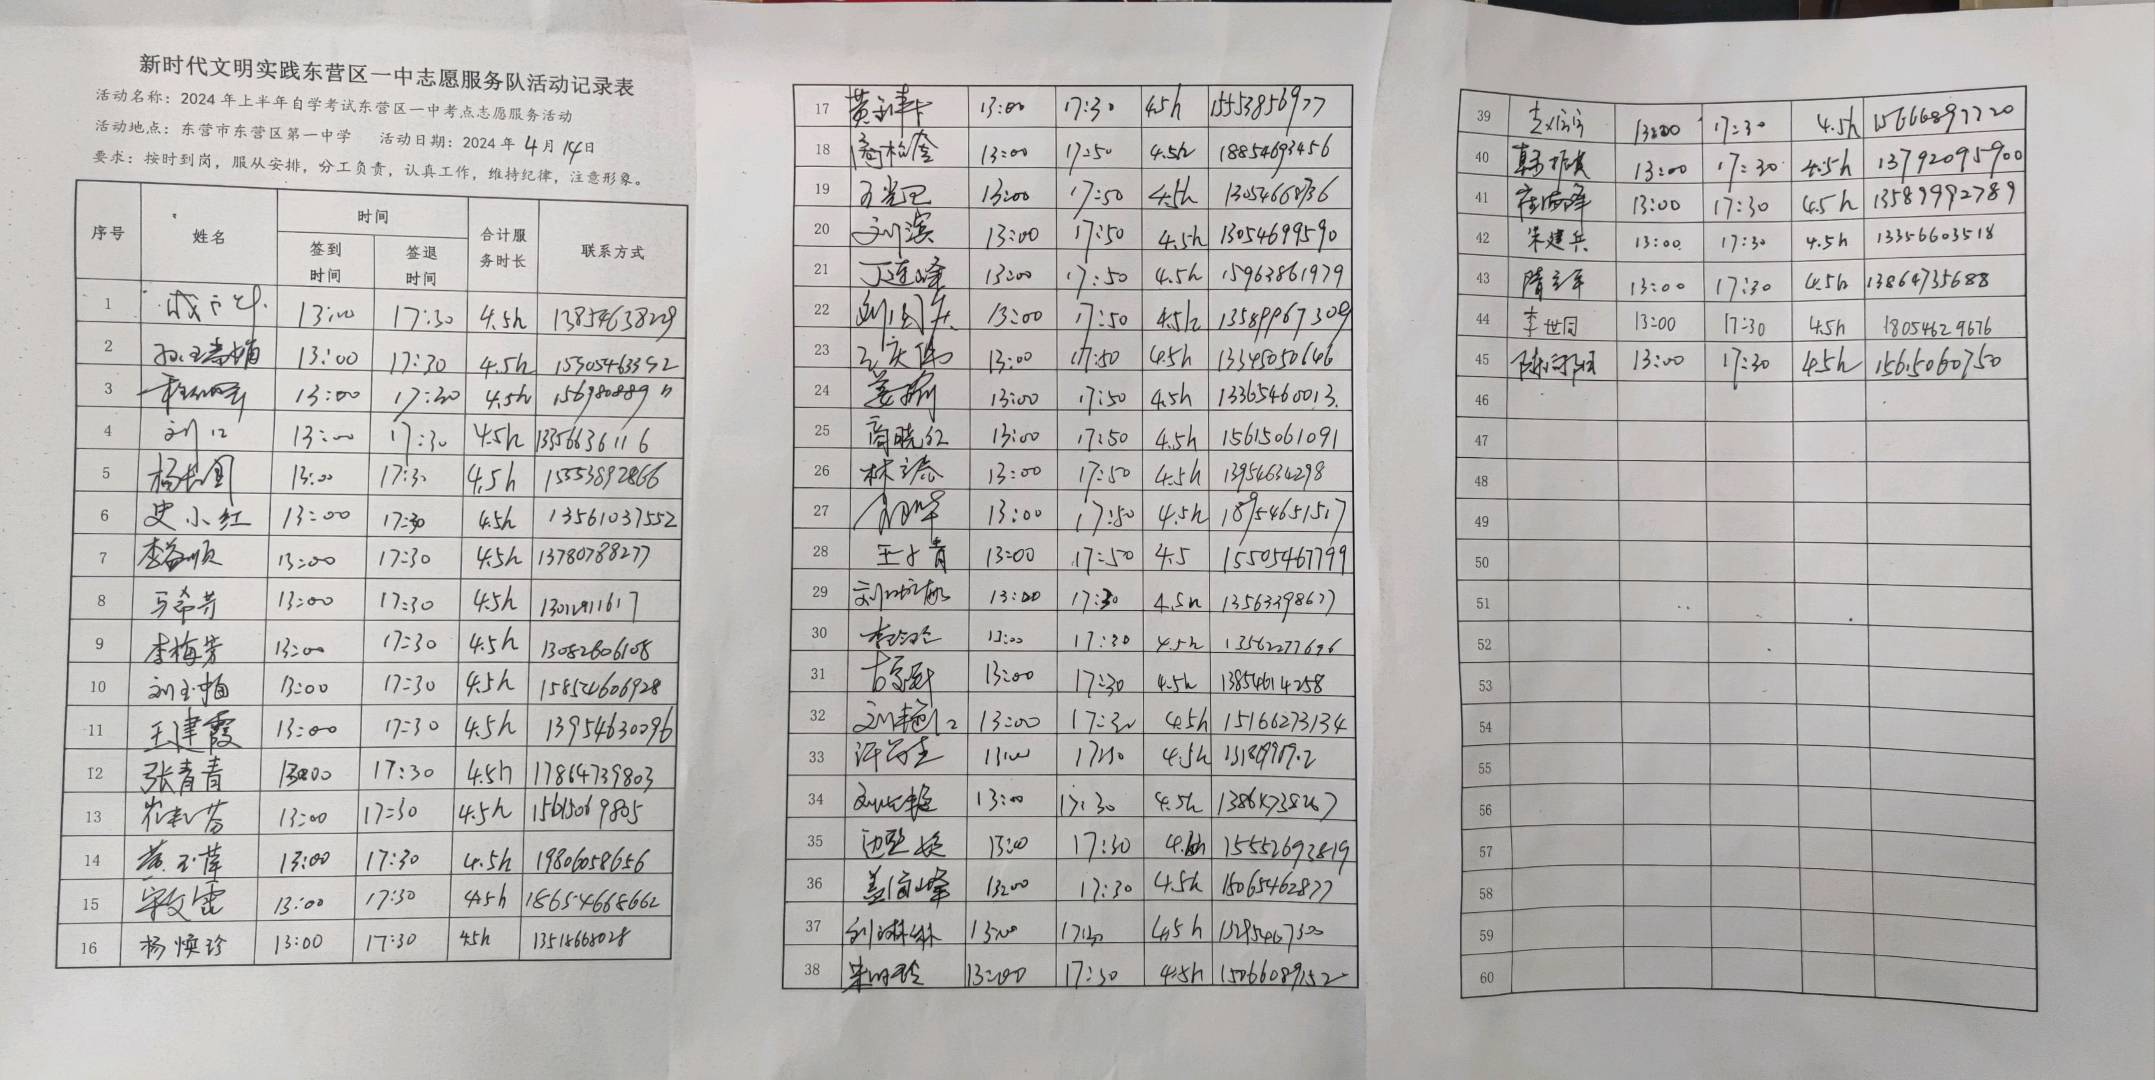 新时代文明实践东营区一中志愿服务队活动记录表
活动名称：2024年上半年自学考试东营区一中考点志愿服务活动
活动地点：东营市东营区第一中学 活动日期：2024年4月14日
要求：按时到岗，服从安排，分工负责，认真工作，维持纪律，注意形象。
序号 姓名 时间 合计服务时长 联系方式
签到时间 签退时间
1 13:00 17:30 4.5h 13854638229
2 13:00 17:30 4.5h 15905463392
3 13:00 17:30 4.5h
4 13:00 17:30 4.5h 13356636116
5 13:00 17:30 4.5h 15553892866
6 史小红 13:00 17:30 4.5h 13561037552
7 李益顺 13:00 17:30 4.5h 13780788277
8 马希芳 13:00 17:30 4.5h
9 李梅芳 13:00 17:30 4.5h 13082606108
10 13:00 17:30 4.5h 15854606928
11 王建霞 13:00 17:30 4.5h 13954630096
12 张青青 13:00 17:30 4.5h 17864739803
13 13:00 17:30 4.5h 15615069805
14 黄玉萍 13:00 17:30 4.5h 19806058656
15 宋文雷 13:00 17:30 4.5h
16 杨焕珍 13:00 17:30 4.5h
17 13:00 17:30 4.5h 15553856977
18 13:00 17:50 4.5h 18854693456
19 13:00 17:50 4.5h 13054668736
20 刘滨 13:00 17:50 4.5h 13054699590
21 丁连峰 13:00 17:50 4.5h 15963861979
22 13:00 17:50 4.5h 13589967309
23 13:00 17:50 4.5h 13345050646
24 13:00 17:50 4.5h 13365460013
25 商晓红 13:00 17:50 4.5h 15615061091
26 林志 13:00 17:50 4.5h 13954634298
27 13:00 17:50 4.5h 18954651517
28 13:00 17:50 4.5 15505467799
29 13:00 17:30 4.5h 13563398677
30 13:00 17:30 4.5h 13562277696
31 13:00 17:30 4.5h 13854614258
32 13:00 17:30 4.5h 15166273134
33 13:00 17:30 4.5h
34 13:00 17:30 4.5h 13864738267
35 13:00 17:30 4.5h 15552693819
36 盖俊峰 13:00 17:30 4.5h 15065462877
37 刘琳琳 13:00 17:30 4.5h
38 13:00 17:30 4.5h 15066089152
39 13:00 17:30 4.5h 15666897720
40 13:00 17:30 4.5h 13792095900
41 13:00 17:30 4.5h 13589992789
42 朱建兵 13:00 17:30 4.5h 13356603518
43 13:00 17:30 4.5h 13864735688
44 李世同 13:00 17:30 4.5h 18054629676
45 13:00 17:30 4.5h 15615060750
46
47
48
49
50
51
52
53
54
55
56
57
58
59
60